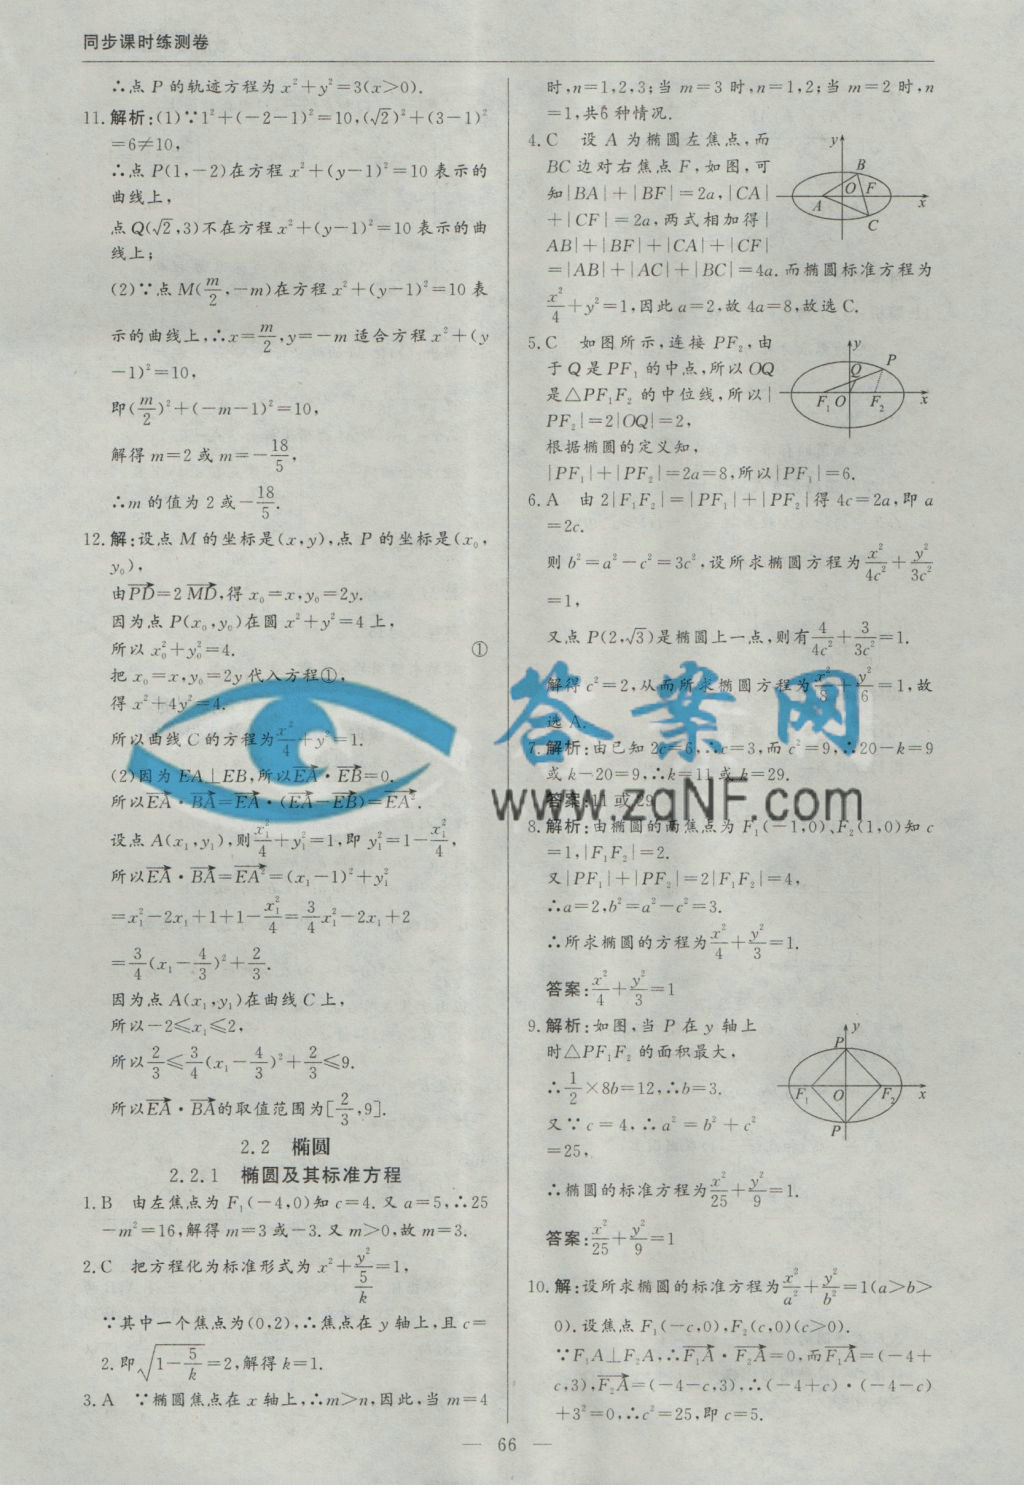 同步课时练测卷
∴点 P 的轨迹方程为 x²+y²=3(x>0).
11.解析:(1)∵1²+(-2-1)²=10,(√2)²+(3-1)²
=6≠10,
∴点 P(1,-2)在方程 x²+(y-1)²=10 表示的
曲线上,
点 Q(√2,3)不在方程 x²+(y-1)²=10 表示的曲
线上;
(2)∵点 M(m/2,-m)在方程 x²+(y-1)²=10 表
示的曲线上,∴x=m/2,y=-m 适合方程 x²+(y
-1)²=10,
即(m/2)²+(-m-1)²=10,
解得 m=2 或 m=-18/5,
∴m 的值为 2 或-18/5.
12.解:设点 M 的坐标是(x,y),点 P 的坐标是(x₀,
y₀),
由PD→=2 MD→,得 x₀=x,y₀=2y.
因为点 P(x₀,y₀)在圆 x²+y²=4 上,
所以 x₀²+y₀²=4. ①
把 x₀=x,y₀=2y 代入方程①,
得 x²+4y²=4.
所以曲线 C 的方程为x²/4+y²=1.
(2)因为 EA⊥EB,所以EA→·EB→=0.
所以EA→·BA→=EA→·(EA→-EB→)=EA→².
设点 A(x₁,y₁),则x₁²/4+y₁²=1,即 y₁²=1-x₁²/4,
所以EA→·BA→=EA→²=(x₁-1)²+y₁²
=x₁²-2x₁+1+1-x₁²/4=3/4x₁²-2x₁+2
=3/4(x₁-4/3)²+2/3.
因为点 A(x₁,y₁)在曲线 C 上,
所以-2≤x₁≤2,
所以2/3≤3/4(x₁-4/3)²+2/3≤9.
所以EA→·BA→的取值范围为[2/3,9].
2.2 椭圆
2.2.1 椭圆及其标准方程
1.B 由左焦点为 F₁(-4,0)知 c=4.又 a=5,∴25
-m²=16,解得 m=3 或-3.又 m>0,故 m=3.
2.C 把方程化为标准形式为 x²+y²/(5/k)=1,
∵其中一个焦点为(0,2),∴焦点在 y 轴上,且 c=
2.即√(1-5/k)=2,解得 k=1.
3.A ∵椭圆焦点在 x 轴上,∴m>n,因此,当 m=4
时,n=1,2,3;当 m=3 时,n=1,2;当 m=2 时,n
=1,共6 种情况.
4.C 设 A 为椭圆左焦点,而
BC 边对右焦点 F,如图,可
知|BA|+|BF|=2a,|CA|
+|CF|=2a,两式相加得|
AB|+|BF|+|CA|+|CF|
=|AB|+|AC|+|BC|=4a.而椭圆标准方程为
x²/4+y²=1,因此 a=2,故 4a=8,故选 C.
y
B
O F
A
x
C
5.C 如图所示,连接 PF₂,由
于 Q 是 PF₁ 的中点,所以 OQ
是△PF₁F₂ 的中位线,所以|
PF₂|=2|OQ|=2,
根据椭圆的定义知,
|PF₁|+|PF₂|=2a=8,所以|PF₁|=6.
y
P
Q
F₁ O F₂ x
6.A 由 2|F₁F₂|=|PF₁|+|PF₂|得 4c=2a,即 a
=2c.
则 b²=a²-c²=3c²,设所求椭圆方程为x²/4c²+y²/3c²
=1,
又点 P(2,√3)是椭圆上一点,则有4/4c²+3/3c²=1.
解得 c²=2,从而所求椭圆方程为x²/8+y²/6=1,故
选 A.
7.解析:由已知 2c=6,∴c=3,而 c²=9,∴20-k=9
或 k-20=9,∴k=11 或 k=29.
答案:11 或 29
8.解析:由椭圆的两焦点为 F₁(-1,0)、F₂(1,0)知 c
=1,|F₁F₂|=2.
又|PF₁|+|PF₂|=2|F₁F₂|=4,
∴a=2,b²=a²-c²=3.
∴所求椭圆的方程为x²/4+y²/3=1.
答案:x²/4+y²/3=1
9.解析:如图,当 P 在 y 轴上
时△PF₁F₂ 的面积最大,
∴1/2×8b=12,∴b=3.
又∵c=4,∴a²=b²+c²
=25,
∴椭圆的标准方程为x²/25+y²/9=1.
答案:x²/25+y²/9=1
y
P
F₁ O F₂ x
P
10.解:设所求椭圆的标准方程为x²/a²+y²/b²=1(a>b>
0).设焦点 F₁(-c,0),F₂(c,0)(c>0).
∵F₁A⊥F₂A,∴F₁A→·F₂A→=0,而F₁A→=(-4+
c,3),F₂A→=(-4-c,3),∴(-4+c)·(-4-c)
+3²=0,∴c²=25,即 c=5.
— 66 —
答案网
www.zqNF.com